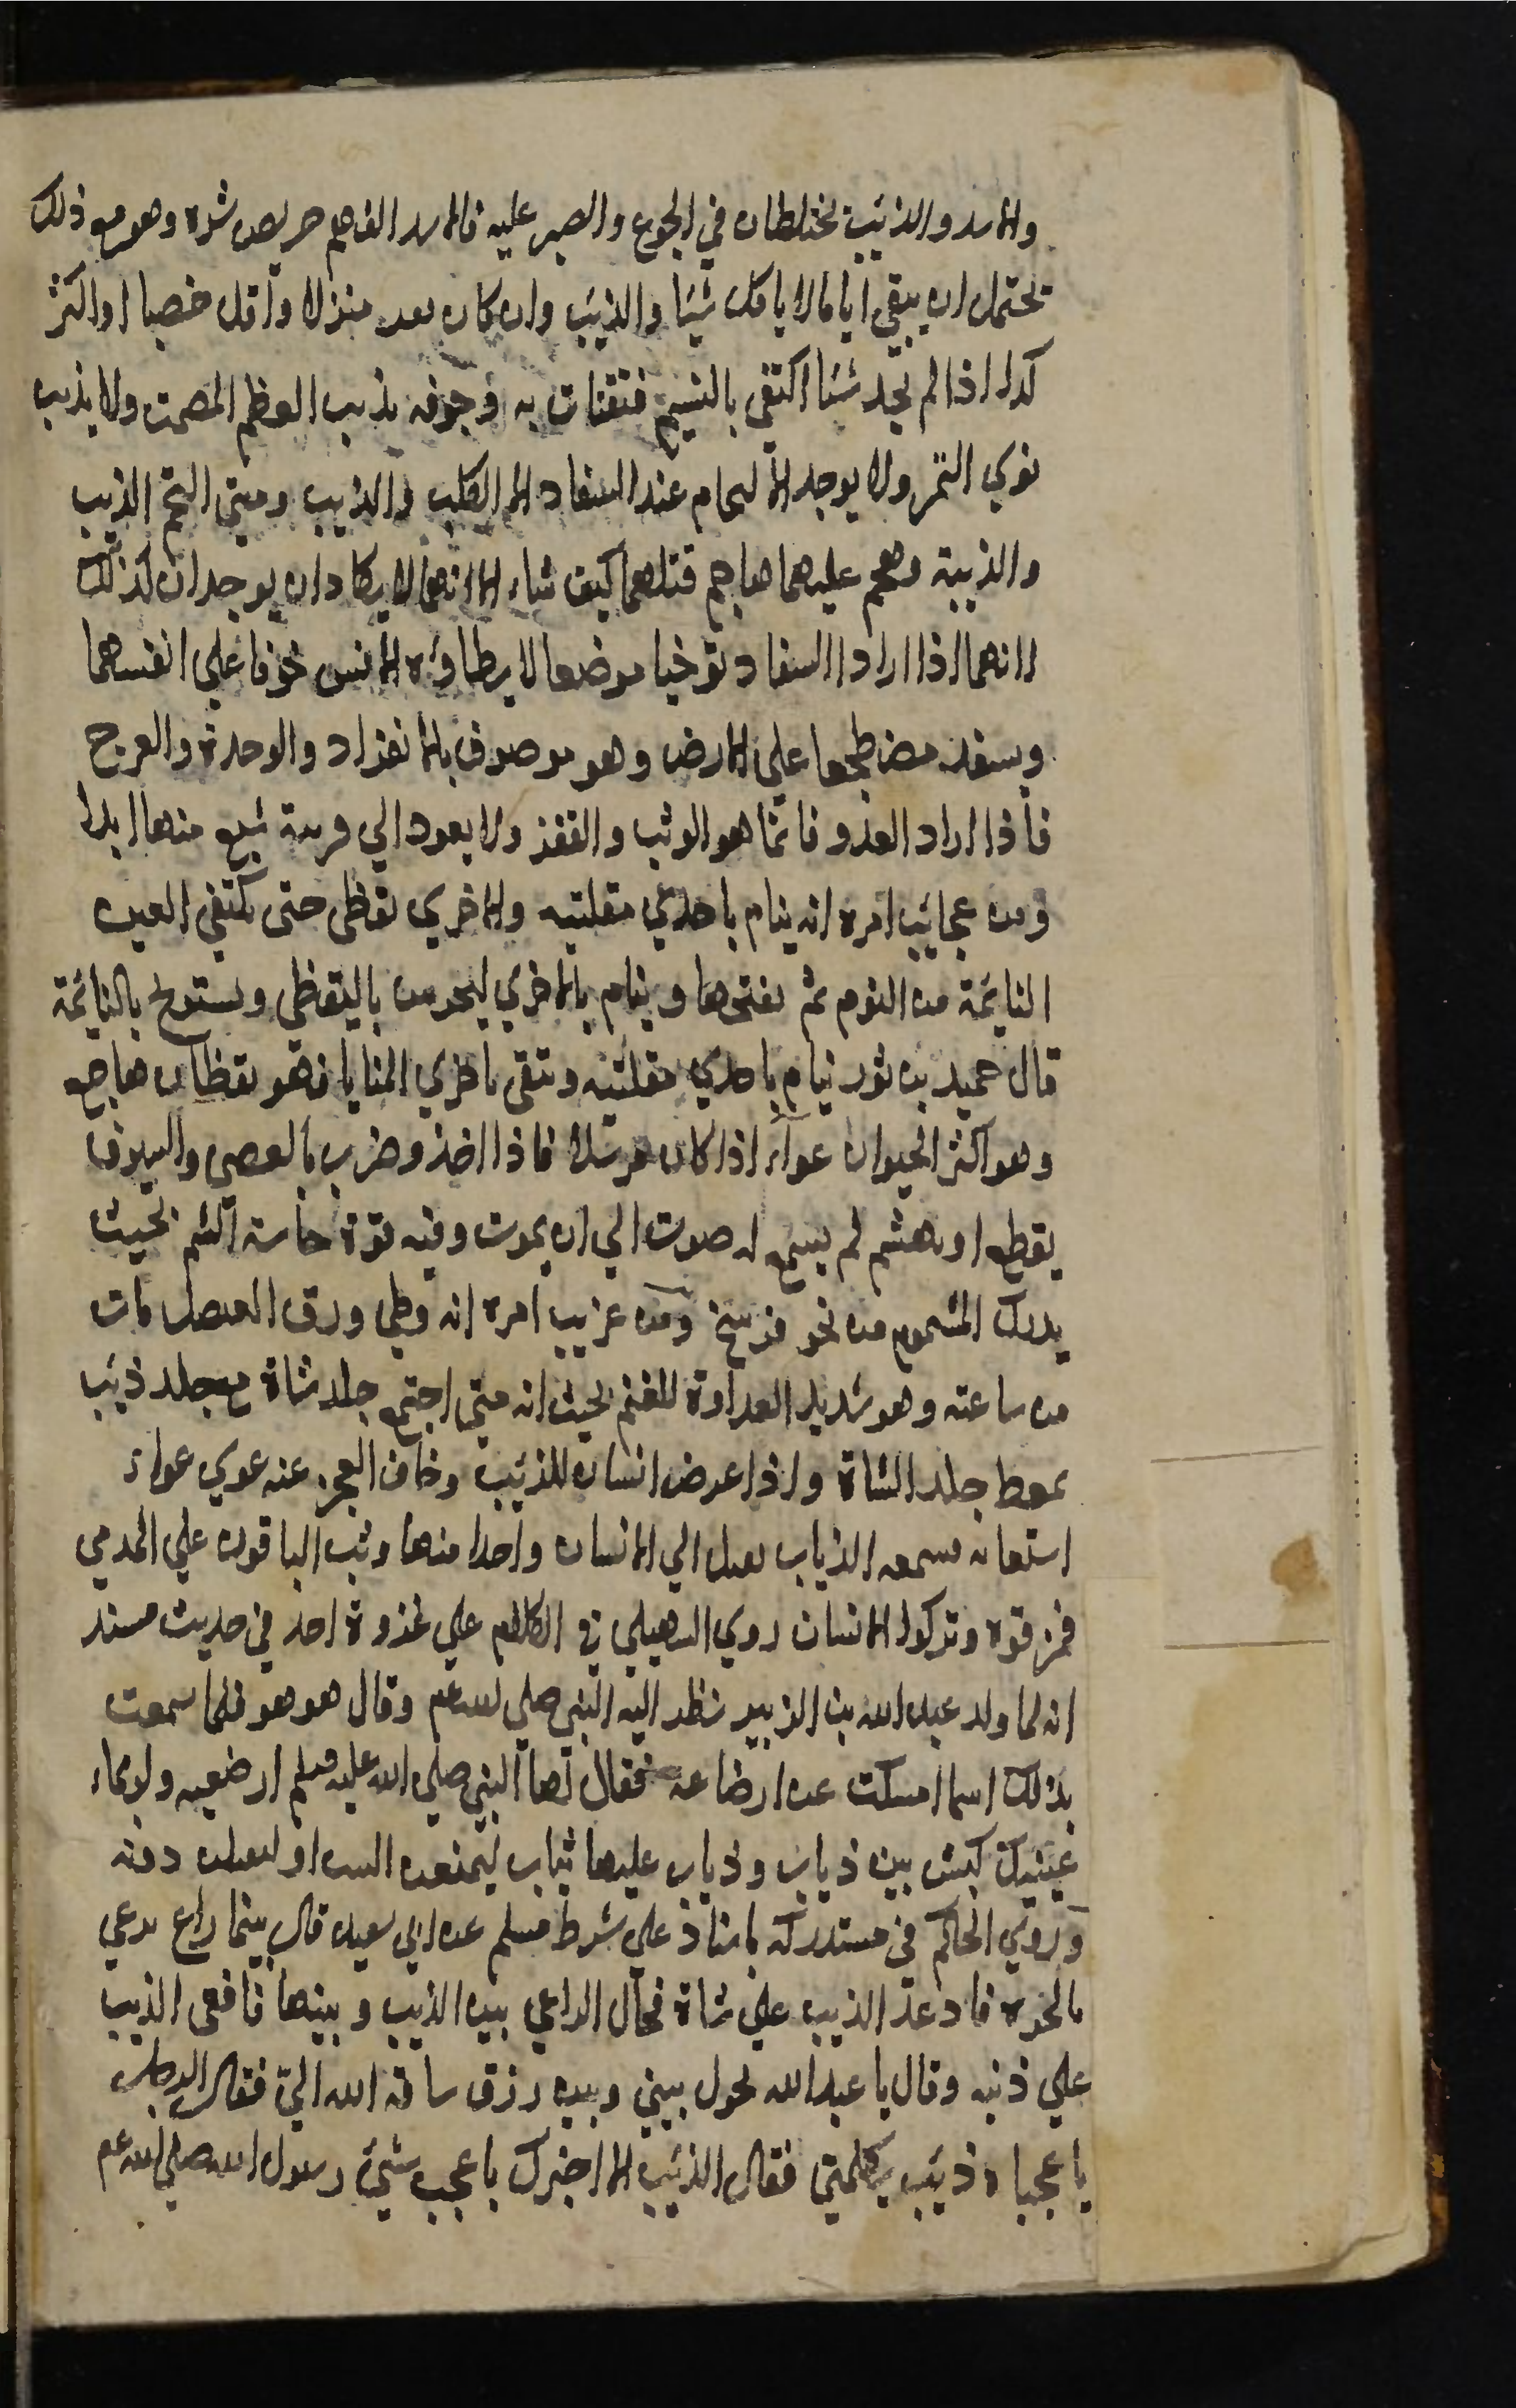 والاسد والذئب تختلطان في الجوع والصبر عليه فالاسد الفاهم حريص شره وهو مع ذلك
يحتمل ان يبقى اياما لا ياكل شيئا والذئب وان كان بعد منزلا واقل خصبا او اكثر
كدا اذا لم يجد شئا اكتفى بالنسيم فتقتات به وجوفه يذيب العظم المصمت ولا يذيب
نوي التمر ولا يوجد الا لتحام عند السفاد الا الكلب والذيب ومتى التحم الذيب
والذيبة وهجم عليهما هاجم قتلهما كيف شاء الا انهما لا يكادان يوجدان كذلك
لانهما اذا ارادا السفاد توخيا موضعا لا يطاؤه الانس خوفا على انفسهما
ويسفد مضطجعا على الارض وهو موصوف بالانفراد والوحدة والعرج
فاذا اراد العدو فانما هو الوثب والقفز ولا يعود الي فريسة شبع منها ابدا
ومن عجائب امره انه ينام باحدي مقلتيه والاخري يقظى حتى تكتفي العين
النائمة من النوم ثم يفتحها وينام بالاخري ليحرس باليقظى ويستريح بالنائمة
قال حميد بن ثور ينام باحدي مقلتيه ويتقى باخري المنايا فهو يقظان هاجع
وهو اكثر الحيوان عواء اذا كان مرسلا فاذا اخذ وضرب بالعصي والسيوف
يقطع او يهشم لم يسمع له صوت الي ان يموت وفيه قوة حاسة الشم بحيث
يدرك المشموم من نحو فرسخ ومن غريب امره انه وطي ورق العنصل مات
من ساعته وهو شديد العداوة للغنم بحيث انه متى اجتمع جلد شاة مع جلد ذئب
تمعط جلد الشاة واذا عرض انسان للذئب وخاف العجز عنه عوي عواء
استغاثه فسمعه الذياب فتقبل الي الانسان واحدا منها وثب الباقون علي المدمي
فمزقوه وتركوا الانسان روي السهيلي في الكلام علي غزوة احد في حديث مسند
انه لما ولد عبد الله بن الزبير نظر اليه النبي صلي الله عم وقال هو هو فلما سمعت
بذلك اسما امسكت عن ارضاعه فقال لها النبي صلي الله عليه وسلم ارضعيه ولو بماء
عينيك كبش بين ذياب وذياب عليها ثياب ليمنعن البيت او ليقتلن دونه
وروي الحاكم في مستدركه باسناد علي شرط مسلم عن ابي سعيد قال بينما راع يرعي
بالحرة فاذ عدا الذيب علي شاة فحال الراعي بين الذيب وبينها فاقعى الذيب
علي ذنبه وقال يا عبد الله تحول بيني وبين رزق ساقه الله الي فقال الرجل
يا عجباه ذئب يكلمني فقال الذئب الا اخبرك باعجب شئ رسول الله صلي الله عم